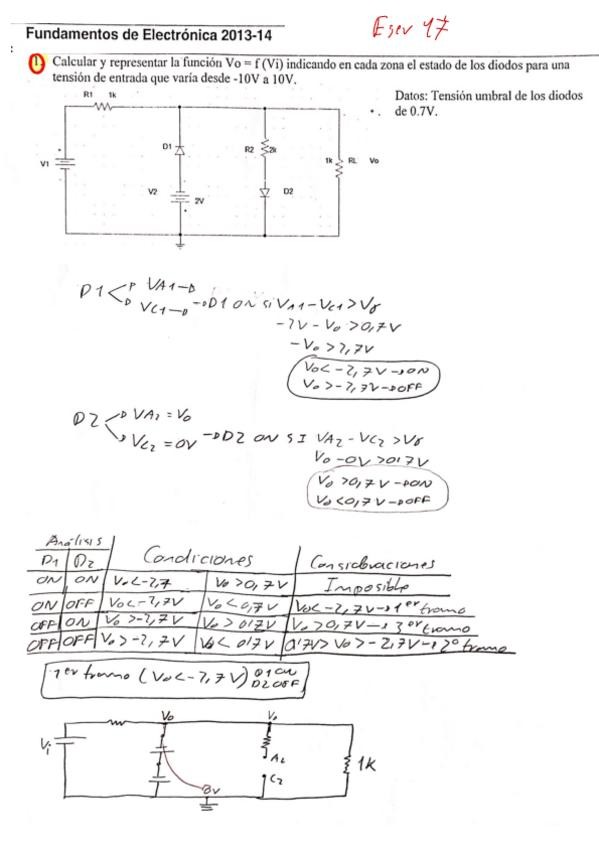 Fundamentos de Electrónica 2013-14
Eser 17
1. Calcular y representar la función Vo = f (Vi) indicando en cada zona el estado de los diodos para una
tensión de entrada que varía desde -10V a 10V.
Datos: Tensión umbral de los diodos
de 0.7V.
R1 1k
D1
R2 2k
1k RL Vo
V1
V2
2V
D2
D1 VA1→
VC1→ →D1 ON si VA1-VC1>Vγ
-2V-Vo>0,7V
-Vo>2,7V
Vo<-2,7V→ON
Vo>-2,7V→OFF
D2 VA2=Vo
VC2=0V →D2 ON SI VA2-VC2>Vγ
Vo-0V>0'7V
Vo>0,7V→ON
Vo<0,7V→OFF
Análisis
D1 D2 Condiciones Consideraciones
ON ON Vo<-2,7 Vo>0,7V Imposible
ON OFF Vo<-2,7V Vo<0,7V Vo<-2,7V→1er tramo
OFF ON Vo>-2,7V Vo>0'7V Vo>0,7V→3er tramo
OFF OFF Vo>-2,7V Vo<0'7V 0'7V>Vo>-2,7V→2º tramo
1er tramo (Vo<-2,7V) D1 ON
D2 OFF
Vo Vo
Vi
A2
1K
C2
0V